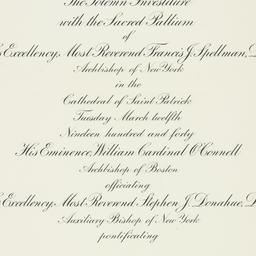 The Solemn Investiture
with the Sacred Pallium
of
Excellency, Most Reverend Francis J. Spellman, D
Archbishop of New York
in the
Cathedral of Saint Patrick
Tuesday March twelfth
Nineteen hundred and forty
His Eminence, William Cardinal O'Connell
Archbishop of Boston
officiating
Excellency, Most Reverend Stephen J. Donahue, D
Auxiliary Bishop of New York
pontificating